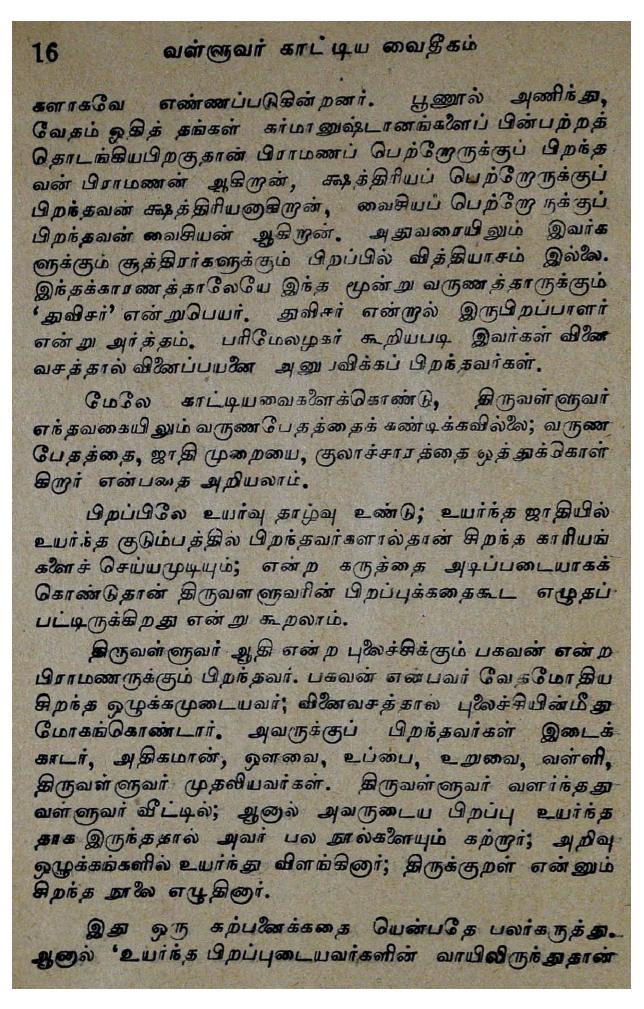 16 வள்ளுவர் காட்டிய வைதீகம்
களாகவே எண்ணப்படுகின்றனர். பூணூல் அணிந்து,
வேதம் ஓதித் தங்கள் கர்மானுஷ்டானங்களைப் பின்பற்றத்
தொடங்கியபிறகுதான் பிராமணப் பெற்றோருக்குப் பிறந்த
வன் பிராமணன் ஆகிறான், க்ஷத்திரியப் பெற்றோருக்குப்
பிறந்தவன் க்ஷத்திரியனாகிறான், வைசியப் பெற்றோருக்குப்
பிறந்தவன் வைசியன் ஆகிறான். அதுவரையிலும் இவர்க
ளுக்கும் சூத்திரர்களுக்கும் பிறப்பில் வித்தியாசம் இல்லை.
இந்தக்காரணத்தாலேயே இந்த மூன்று வருணத்தாருக்கும்
‘துவிசர்’ என்றுபெயர். துவிசர் என்றால் இருபிறப்பாளர்
என்று அர்த்தம். பரிமேலழகர் கூறியபடி இவர்கள் வினை
வசத்தால் வினைப்பயனை அனுபவிக்கப் பிறந்தவர்கள்.
மேலே காட்டியவைகளைக்கொண்டு, திருவள்ளுவர்
எந்தவகையிலும் வருணபேதத்தைக் கண்டிக்கவில்லை; வருண
பேதத்தை, ஜாதி முறையை, குலாச்சாரத்தை ஒத்துக்கொள்
கிறார் என்பதை அறியலாம்.
பிறப்பிலே உயர்வு தாழ்வு உண்டு; உயர்ந்த ஜாதியில்
உயர்ந்த குடும்பத்தில் பிறந்தவர்களால்தான் சிறந்த காரியங்
களைச் செய்யமுடியும்; என்ற கருத்தை அடிப்படையாகக்
கொண்டுதான் திருவள்ளுவரின் பிறப்புக்கதைகூட எழுதப்
பட்டிருக்கிறது என்று கூறலாம்.
திருவள்ளுவர் ஆதி என்ற புலைச்சிக்கும் பகவன் என்ற
பிராமணருக்கும் பிறந்தவர். பகவன் என்பவர் வேதமோதிய
சிறந்த ஒழுக்கமுடையவர்; வினைவசத்தால் புலைச்சியின்மீது
மோகங்கொண்டார். அவருக்குப் பிறந்தவர்கள் இடைக்
காடர், அதிகமான், ஔவை, உப்பை, உறுவை, வள்ளி,
திருவள்ளுவர் முதலியவர்கள். திருவள்ளுவர் வளர்ந்தது
வள்ளுவர் வீட்டில்; ஆனால் அவருடைய பிறப்பு உயர்ந்த
தாக இருந்ததால் அவர் பல நூல்களையும் கற்றார்; அறிவு
ஒழுக்கங்களில் உயர்ந்து விளங்கினார்; திருக்குறள் என்னும்
சிறந்த நூலை எழுதினார்.
இது ஒரு கற்பனைக்கதை யென்பதே பலர்கருத்து.
ஆனால் ‘உயர்ந்த பிறப்புடையவர்களின் வாயிலிருந்துதான்